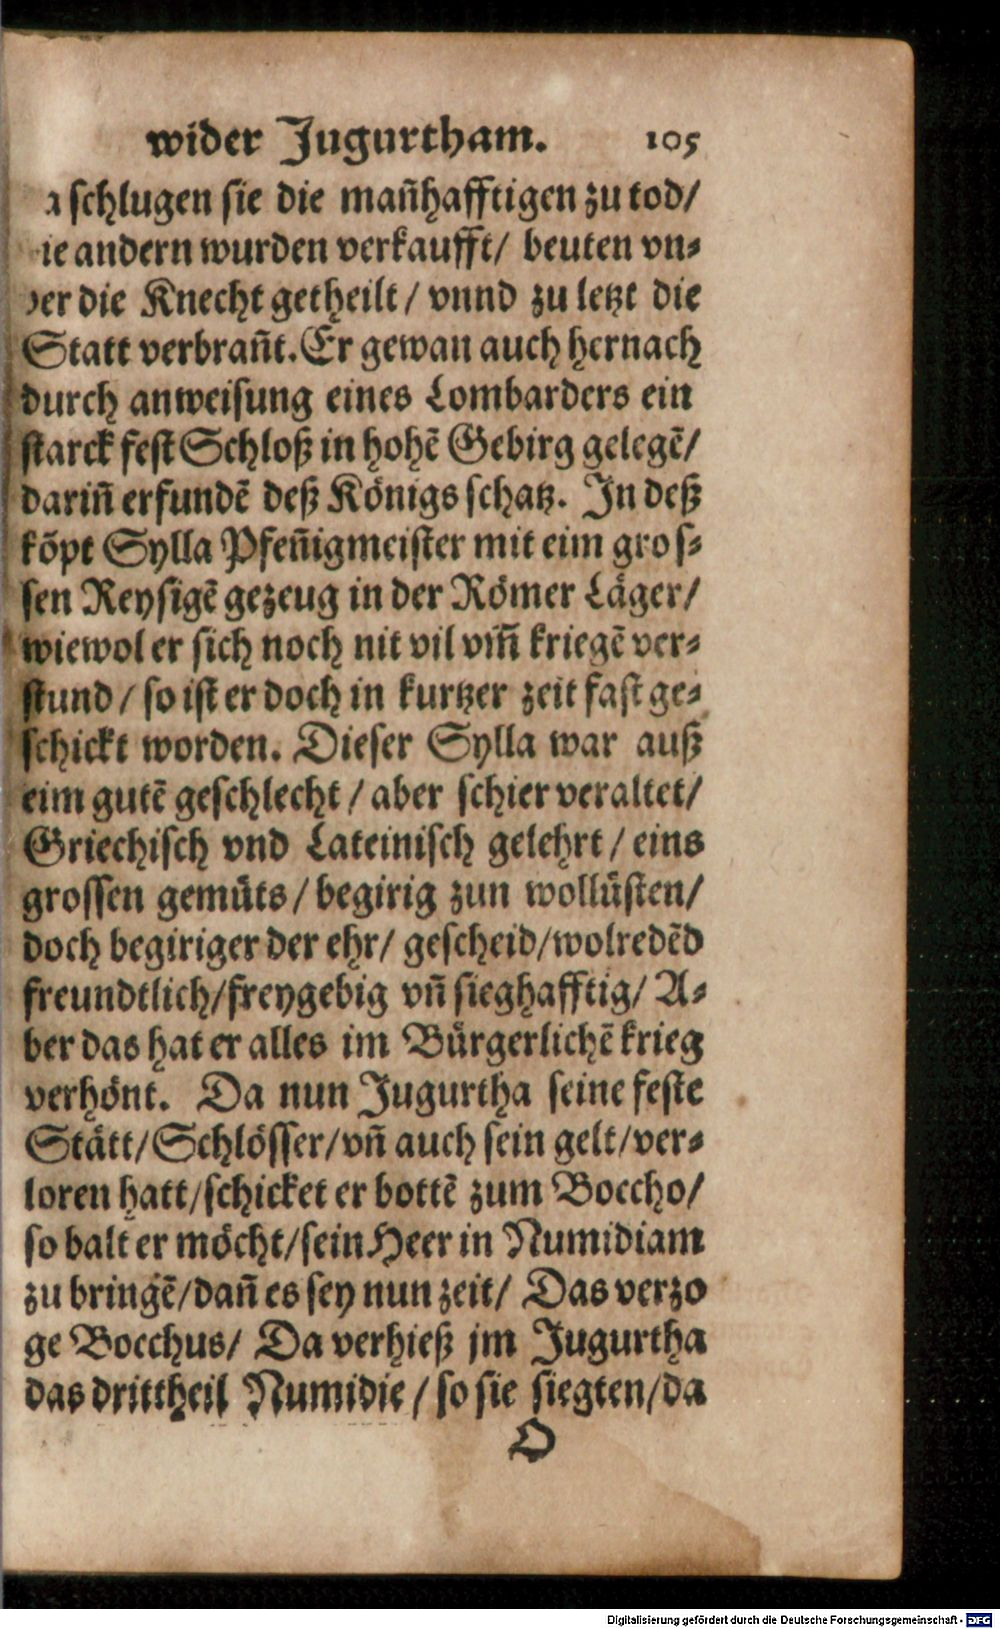 wider Jugurtham. 105
a schlugen sie die mañhafftigen zu tod/
ie andern wurden verkaufft/ beuten vn⸗
er die Knecht getheilt / vnnd zu letzt die
Statt verbrañt. Er gewan auch hernach
durch anweisung eines Lombarders ein
starck fest Schloß in hohẽ Gebirg gelegẽ/
dariñ erfundẽ deß Königs schatz. In deß
kõpt Sylla Pfeñigmeister mit eim gros⸗
sen Reysigẽ gezeug in der Römer Läger/
wiewol er sich noch nit vil vm̃ kriegẽ ver⸗
stund / so ist er doch in kurtzer zeit fast ge⸗
schickt worden. Dieser Sylla war auß
eim gutẽ geschlecht / aber schier veraltet/
Griechisch vnd Lateinisch gelehrt / eins
grossen gemüts / begirig zun wollüsten/
doch begiriger der ehr/ gescheid/wolredẽd
freundtlich/freygebig vñ sieghafftig/ A⸗
ber das hat er alles im Bürgerlichẽ krieg
verhönt. Da nun Jugurtha seine feste
Stätt/Schlösser/vñ auch sein gelt/ver⸗
loren hatt/schicket er bottẽ zum Boccho/
so balt er möcht/sein Heer in Numidiam
zu bringẽ/dañ es sey nun zeit/ Das verzo
ge Bocchus/ Da verhieß jm Jugurtha
das drittheil Numidie / so sie siegten/da
O
Digitalisierung gefördert durch die Deutsche Forschungsgemeinschaft - DFG